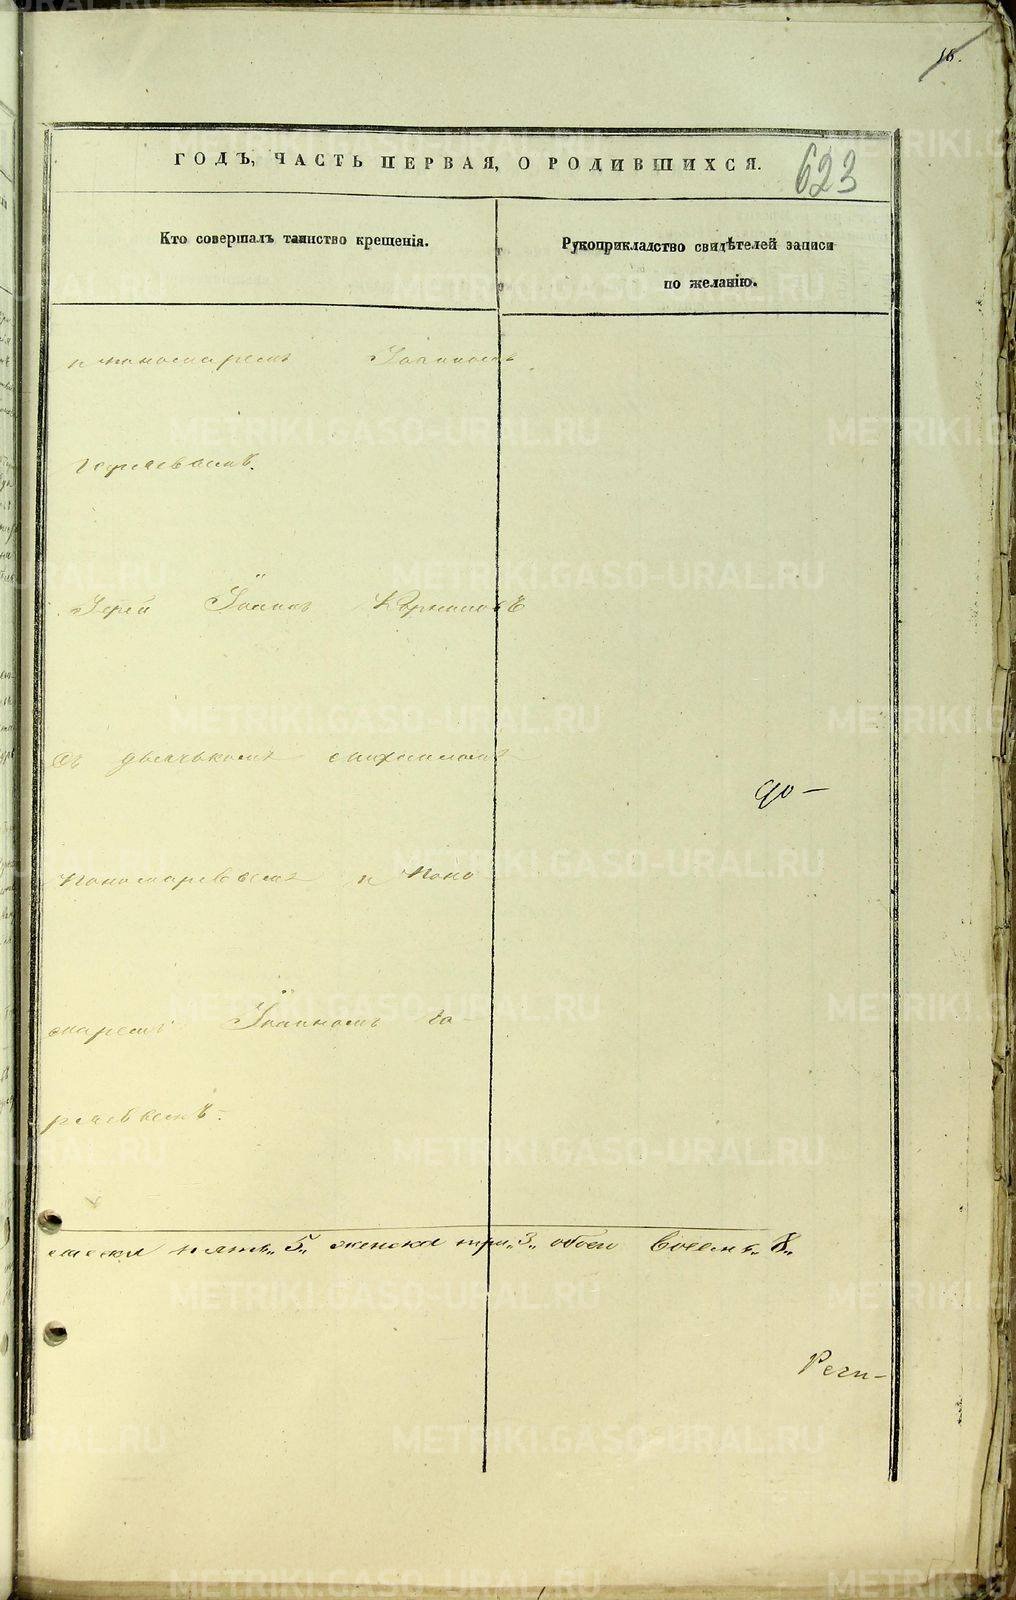 18.
ГОДЪ, ЧАСТЬ ПЕРВАЯ, О РОДИВШИХСЯ.
623
Кто совершалъ таинство крещенія.
Рукоприкладство свидѣтелей записи
по желанію.
и пономаремъ Іоанномъ
Іерей Іоаннъ Корниловъ
Съ дьячькомъ
до-
Пономаревымъ и Поно
маремъ Іоанномъ
мужеска пять „5„ женска три „3„ обоего восемь „8„
METRIKI.GASO-URAL.RU